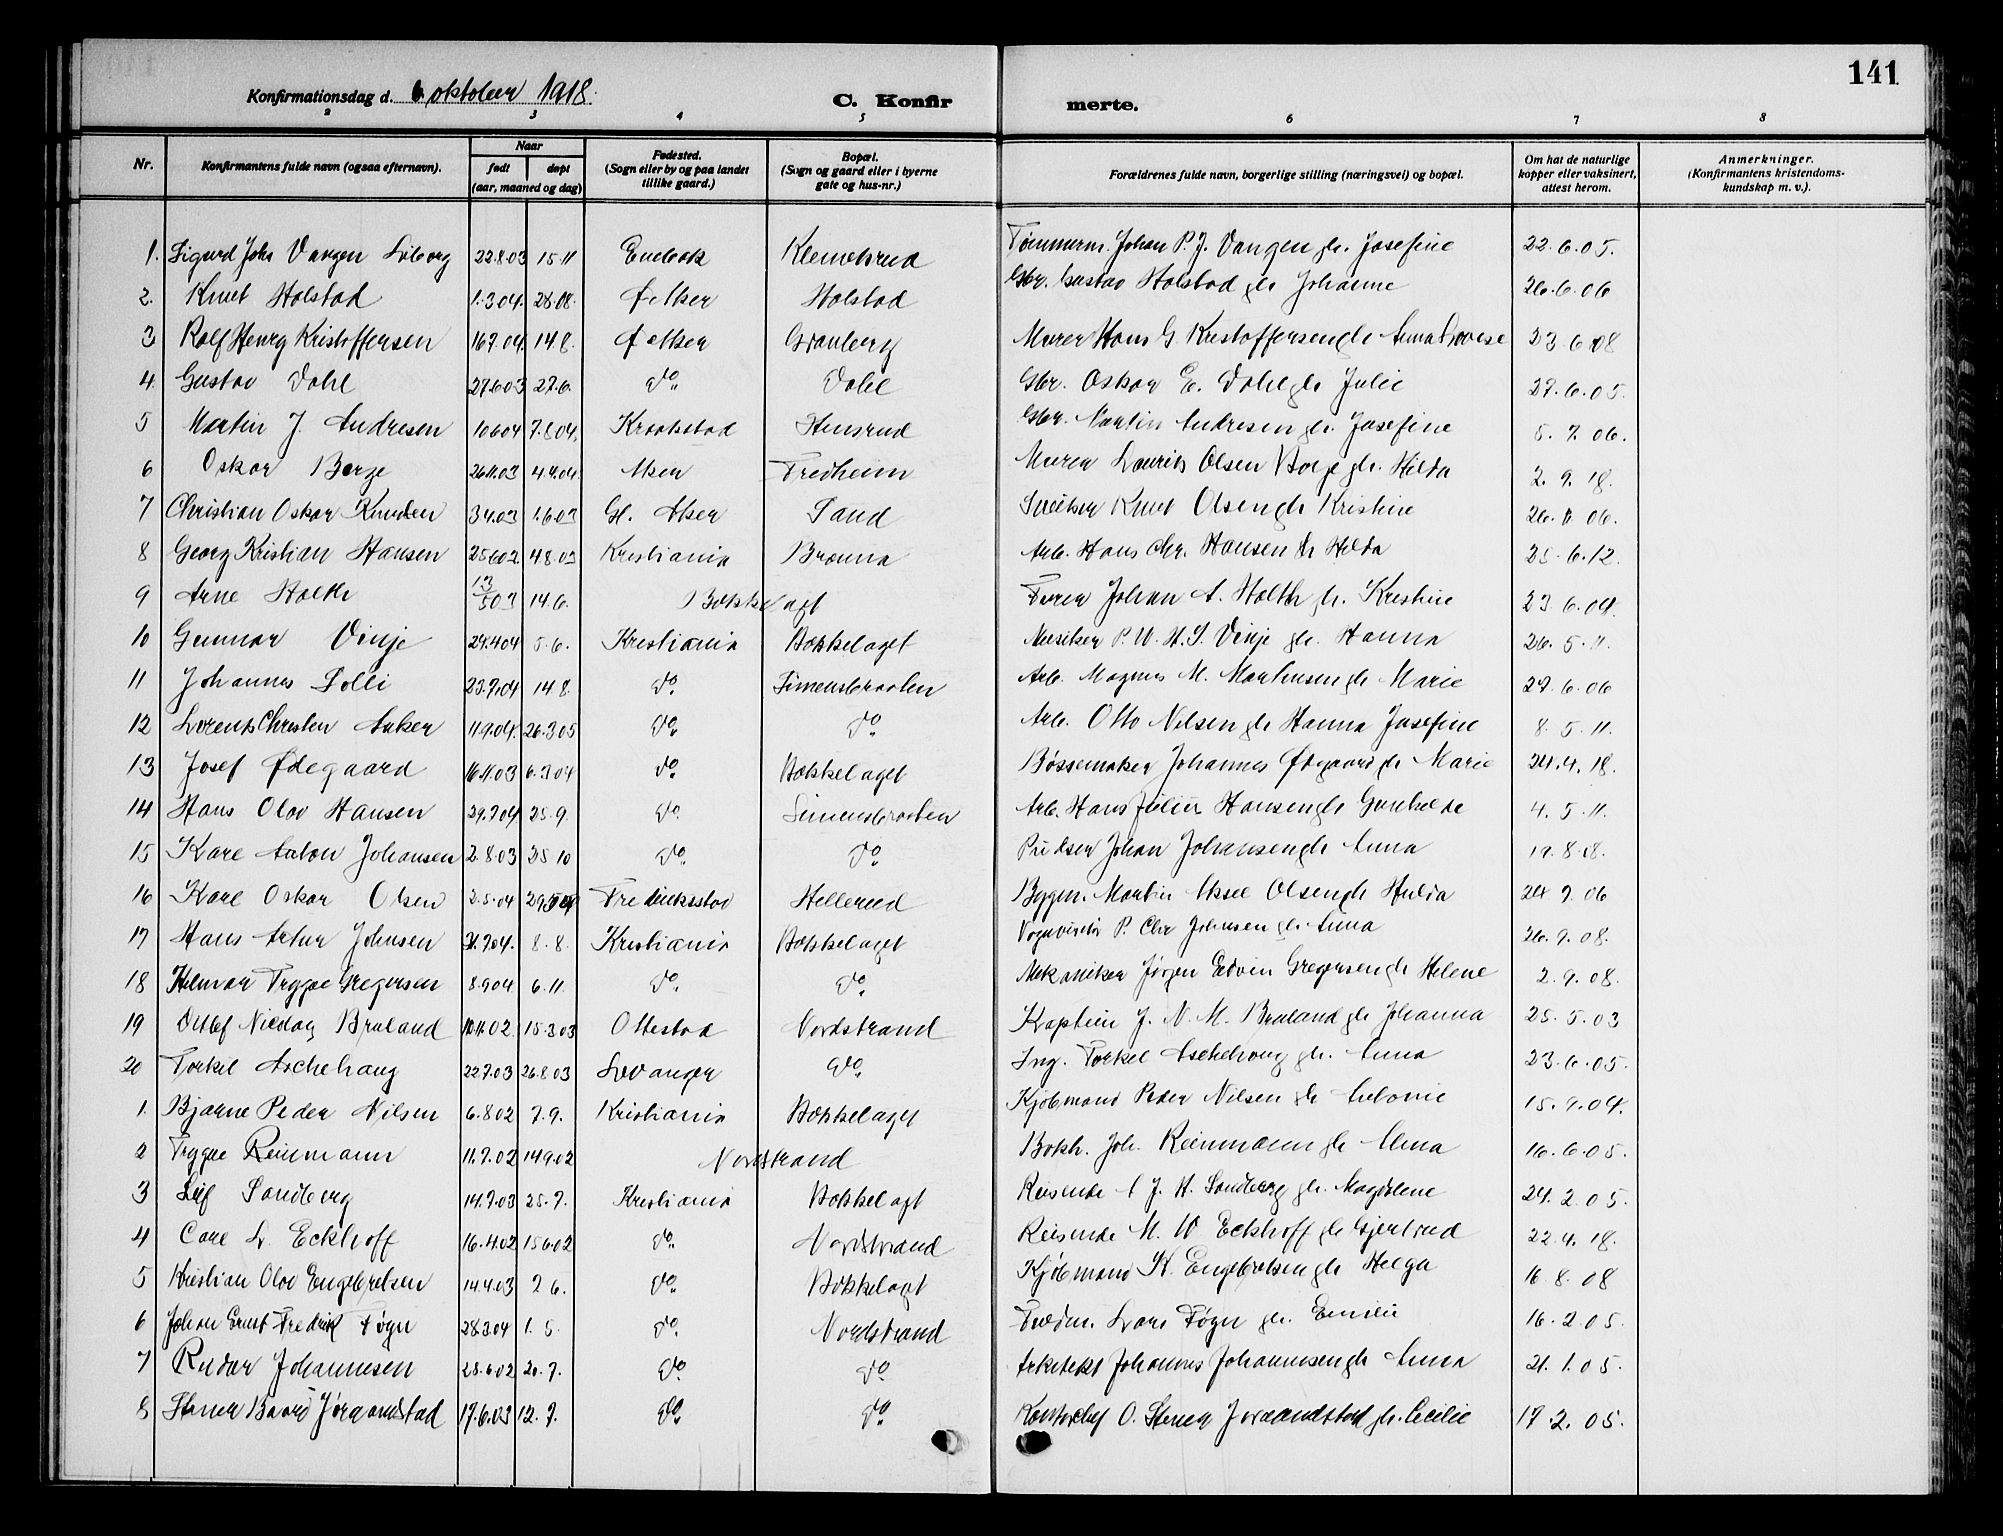 141
Konfirmationsdag d. 6 oktober 1918. C. Konfir merte.
2 3 4 5 6 7 8
Nr. Konfirmantens fulde navn (ogsaa efternavn). Naar født døpt (aar, maaned og dag) Fødested. (Sogn eller by og paa landet tillike gaard.) Bopæl. (Sogn og gaard eller i byerne gate og hus-nr.) Forældrenes fulde navn, borgerlige stilling (næringsvei) og bopæl. Om hat de naturlige kopper eller vaksinert, attest herom. Anmerkninger. (Konfirmantens kristendoms-kundskap m. v.).
1. Sigurd Johs Vangen 22.8.03 15.11 Enebak Klemetsrud Tømmerm. Johan P. J. Vangen gh. Josefine 22.6.05.
2. Knut Holstad 1.3.04. 28.08. Ø. Aker Holstad Gbr. Gustav Holstad gh Johanne 26.6.06
3 Rolf Henry Kristoffersen 16.7.04. 14.8. Ø Aker Granberg Murer Hans G. Kristoffersen gh Anna Lovise 23.6.08
4 Gustav Dahl 27.6.03 27.6. Do. Dahl Gbr. Oskar E. Dahl gh Julie 27.6.05.
5 Martin J. Andresen 10.6.04 7.8.04. Kraakstad Stensrud Gbr. Martin Andresen gh. Josefine 5.7.06.
6 Oskar Borge 26.11.03 4.4.04. Aker Fredheim Murer Laurits Olsen Borge gh. Hilda 2.9.18.
7 Christian Oskar Knudsen 3.4.03 1.6.03 Gl. Aker Sand Knut Olsen gh Kristine 26.6.06.
8 Georg Kristian Hansen 25.6.02. 4.8.03 Kristiania Brenna Arb. Hans Chr. Hansen gh Hilda 25.6.12.
9 Arne Holth 13/5 03 14.6. Bækkelaget Johan A. Holth gh. Kristine 23.6.04.
10 Gunnar Vinje 29.4.04 5.6. Kristiania Bækkelaget Musiker P. W. H. S. Vinje gh. Hanna 26.5.11.
11 Johannes Solli 23.7.04 14.8. Do. Simensbraaten Arb. Magnus M. Markussen gh Marie 27.6.06
12 Lorents Christen Anker 11.9.04. 26.3.05 Do. Do. Arb. Otto Nilsen gh Hanna Josefine 8.5.11.
13 Josef Ødegaard 16.11.03 6.3.04 Do. Bækkelaget Bøssemaker Johannes Ødegaard gh Marie 24.4.18.
14 Hans Olav Hansen 29.7.04 25.9. Do. Simensbraaten Arb. Hans Julius Hansen gh Gunhilde 4.5.11.
15 Kare Anton Johansen 2.8.03 25.10 Do. Do. Pudser Johan Johansen gh Anna 19.8.18.
16 Karl Oskar Olsen 2.5.04 Fredrikstad Hellerud Bygm. Martin Aksel Olsen gh Hulda 24.9.06
17 Hans Artur Johnsen 31.7.04. 8.8. Kristiania Bækkelaget Vognvisitør P. Chr Johnsen gh. Anna 26.9.08.
18 Helmer Trygve Gregersen 8.9.04 6.11. Do. Do. Mekaniker Jørgen Edvin Gregersen gh Helene 2.9.08.
19 Detlef Nicolay Bruland 10.11.02. 15.3.03 Ottestad Nordstrand Kaptein J. N. M. Bruland gh Johanna 25.5.03
20 Torkil Aschehoug 22.7.03 26.8.03 Levanger Do. Ing. Torkel Aschehoug gh. Anna 23.6.05.
1. Bjarne Peder Nilsen 6.8.02 7.9. Kristiania Bækkelaget Kjøbmand Peder Nilsen gh 15.9.04.
2 Trygve Reinmann 11.7.02 14.9.02 Nordstrand Bokh. Joh. Reinmann gh Alma 16.6.05.
3 Leif Sandberg 14.7.03 25.7. Kristiania Bækkelaget Reisende A J. H. Sandberg gh. Magdalene 24.2.05.
4 Carl L. Eckhoff 16.4.02 15.6.02 Do. Nordstrand Reisende M. W Eckhoff gh Gjertrud 22.4.18.
5 Kristian Olav Engebretsen 14.4.03 2.6. Do. Bækkelaget Kjøbmand K. Engebretsen gh Helga 16.8.08
6 Johan Ernst Fredrik Føyn 28.3.04 1.5. Do. Nordstrand Lars Føyn gh. Emilie 16.2.05.
7 Reidar Johannesen 25.6.02 20.7. Do. Do. Arkitekt Johannes Johannesen gh Anna 21.1.05.
8 Steinar Baard Jørandstad 17.6.03 12.7. Do. Do. Kontorchef O. Steinar Jørandstad gh. Cecilie 17.2.05.